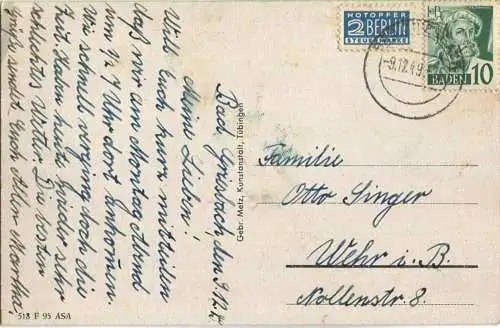 NOTOPFER
2 BERLIN
STEUERMARKE
BADEN 10
-9.12.49
Bad Griesbach, den 9.12.
Meine Lieben!
Will Euch kurz mitteilen
daß wir am Montag Abend
um 1/2 7 Uhr dort ankommen.
Wie schnell verging doch die
Zeit. Haben heute wieder sehr
schlechtes Wetter. Die besten
Grüße sendet Euch Allen Martha.
Gebr. Metz, Kunstanstalt, Tübingen
Familie
Otto Singer
Wehr i. B.
Nollenstr 8.
518 F 95 ASA